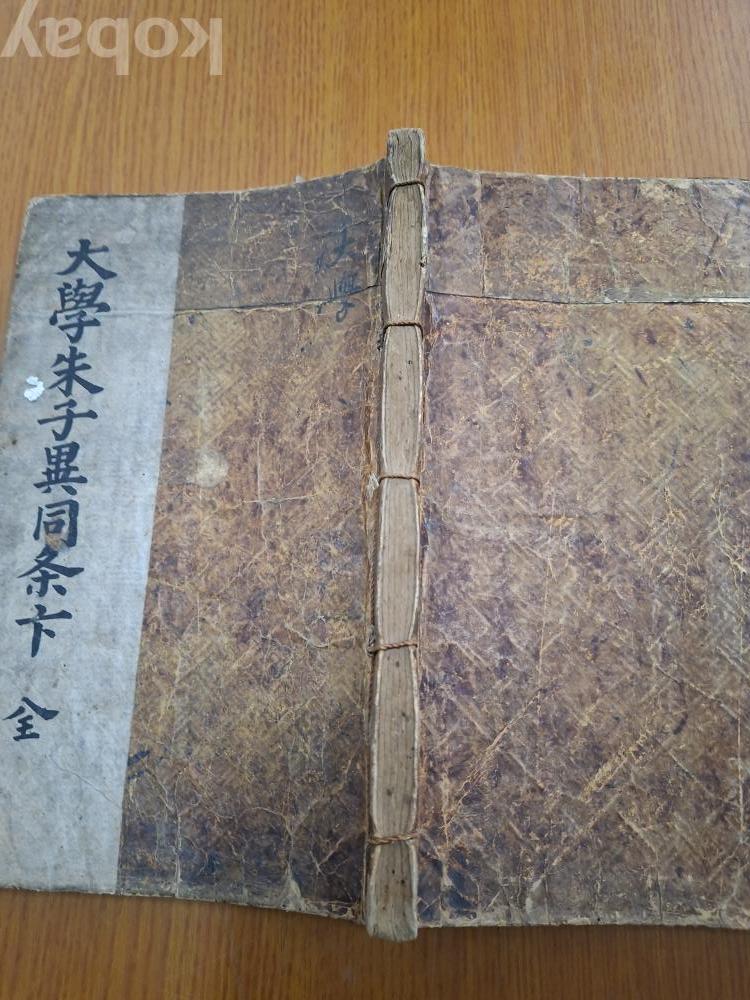 kobay
大學朱子異同条卞 全
大學